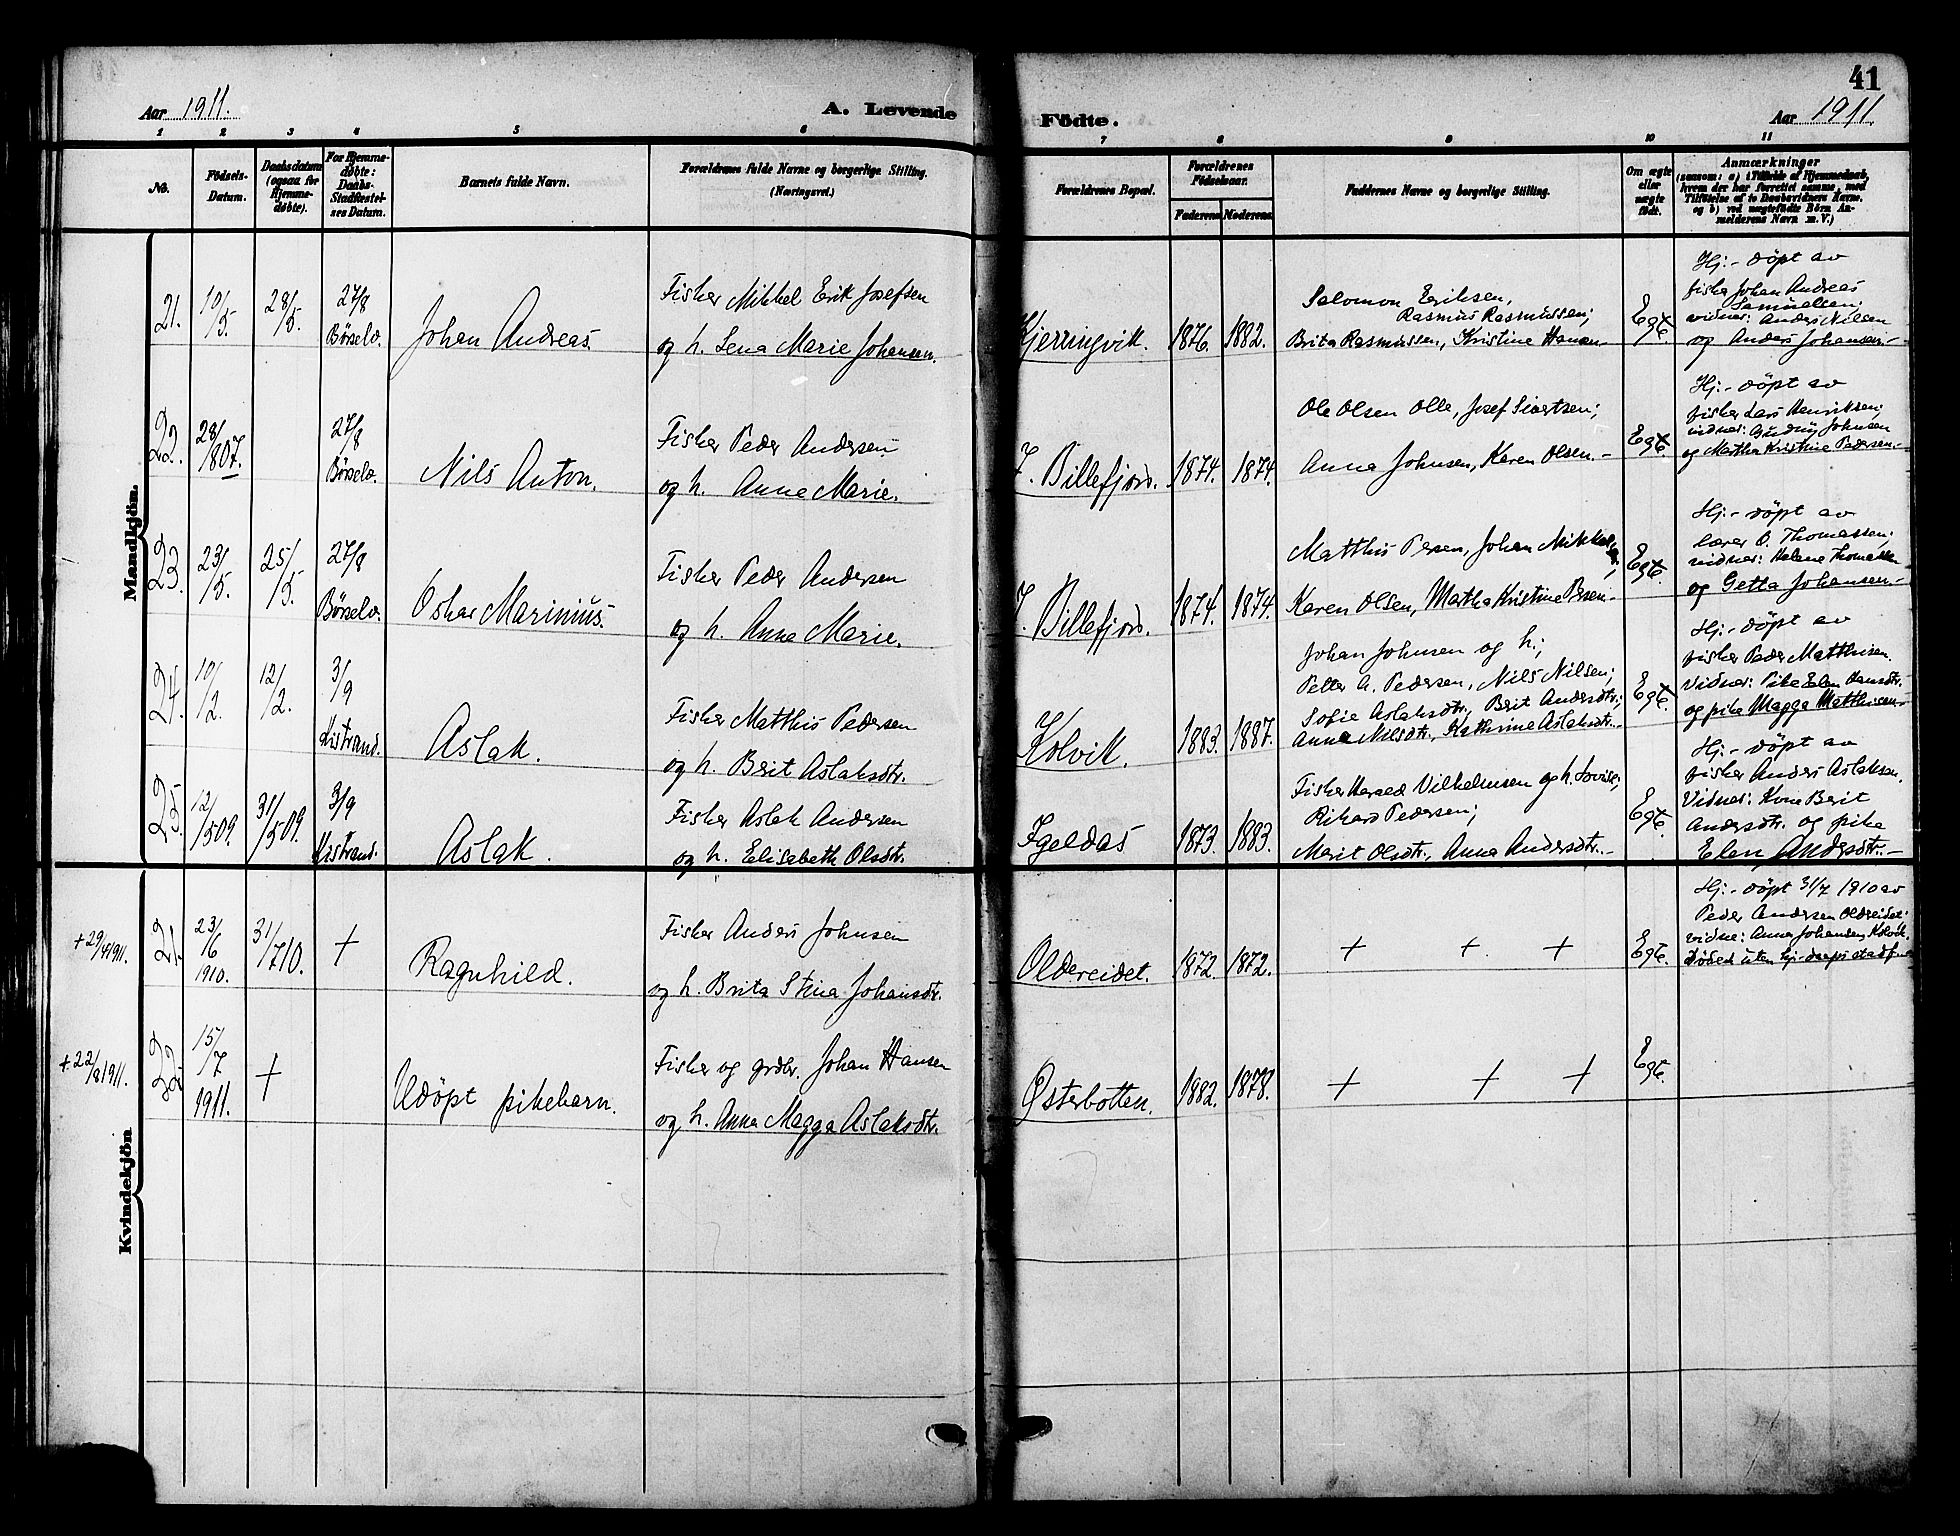 41
Aar 1911.
A. Levende Födte.
Aar 1911.
1 2 3 4 5 6 7 8 9 10 11
No.
Födsels-
Datum.
Daabsdatum
(ogsaa for
Hjemme-
døbte).
For Hjemme-
døbte:
Daabs-
Stadfæstel-
ses Datum.
Barnets fulde Navn.
Forældrenes fulde Navne og borgerlige Stilling.
(Næringsvei.)
Forældrenes Bopæl.
Forældrenes
Födselsaar.
Faderens Moderens
Faddernes Navne og borgerlige Stilling.
Om ægte
eller
uægte
födt.
Anmærkninger
(saasom: a) i Tilfælde af Hjemmedaab,
hvem der har forrettet samme, med
Tilföielse af to Daabsvidners Navne,
og b) ved uægtefödte Börn An-
melderens Navn m. V.)
Mandkjön.
21.
10/5.
28/5.
27/8
Börselv.
Johan Andreas.
Fisker Mikkel Erik Josefsen
og h. Lena Marie Johansen.
Kjerringvik.
1876.
1882.
Salomon Eriksen,
Rasmus Rasmussen;
Brita Rasmussen, Kristine Hansen.-
Egte.
Hj.- döpt av
fisker Johan Andreas
Samuelsen;
vidner: Anders Nilsen
og Anders Johansen.-
22.
28/807.
27/8
Börselv.
Nils Anton.
Fisker Peder Andersen
og h. Anne Marie.
I. Billefjord.
1874.
1874.
Ole Olsen Olle, Josef Sivertsen;
Anna Johnsen, Karen Olsen.-
Egte.
Hj.- döpt av
fisker Lars Henriksen;
vidner: Gudny Johnsen
og Martha Kristine Pedersen.-
23.
23/5.
25/5.
27/8
Börselv.
Oskar Marinius.
Fisker Peder Andersen
og h. Anne Marie.
I. Billefjord.
1874.
1874.
Matthis Persen, Johan Mikkelsen;
Karen Olsen, Martha Kristine Persen.-
Egte.
Hj.- döpt av
lærer O. Thomassen;
vidner: Helene Thomassen
og Getta Johansen.-
24.
10/2.
12/2.
3/9
Kistrand.
Aslak.
Fisker Matthis Pedersen
og h. Berit Aslaksdtr.
Kolvik.
1883.
1887.
Johan Johnsen og h.;
Petter A. Pedersen, Nils Nilsen;
Sofie Aslaksdtr., Brit Andersdtr.;
Anna Nilsdtr., Kathrine Aslaksdtr.-
Egte.
Hj.- döpt av
fisker Peder Matthisen.
Vidner: Pike Elen Hansdtr.
og pike Magga Matthisen.-
25.
12/509.
31/509.
3/9
Kistrand.
Aslak.
Fisker Aslak Andersen
og h. Elisabeth Olsdtr.
Igeldas
1873.
1883.
Fisker Harald Vilhelmsen og h. Lovise;
Rikard Pedersen;
Marit Olsdtr., Anna Andersdtr.-
Egte.
Hj.- döpt av
fisker Anders Aslaksen.
Vidner: Kone Berit
Andersdtr. og pike
Elen Andersdtr.-
Kvindekjön
+29/4 1911.
21.
23/6
1910.
31/710.
+
Ragnhild.
Fisker Anders Johnsen
og h. Brita Stina Johansdtr.
Oldereidet.
1872.
1872.
+ + +
Egte.
Hj.- döpt 31/7 1910 av
Peder Andersen Oldereidet;
vidne: Anna Johansen, Kolvik.
Döde uten hj.-daaps stadf.-
+22/8 1911.
22.
15/7
1911.
+
Udöpt pikebarn.
Fisker og grdbr. Johan Hansen
og h. Anna Magga Aslaksdtr.
Østerbotten.
1882.
1878.
+ + +
Egte.